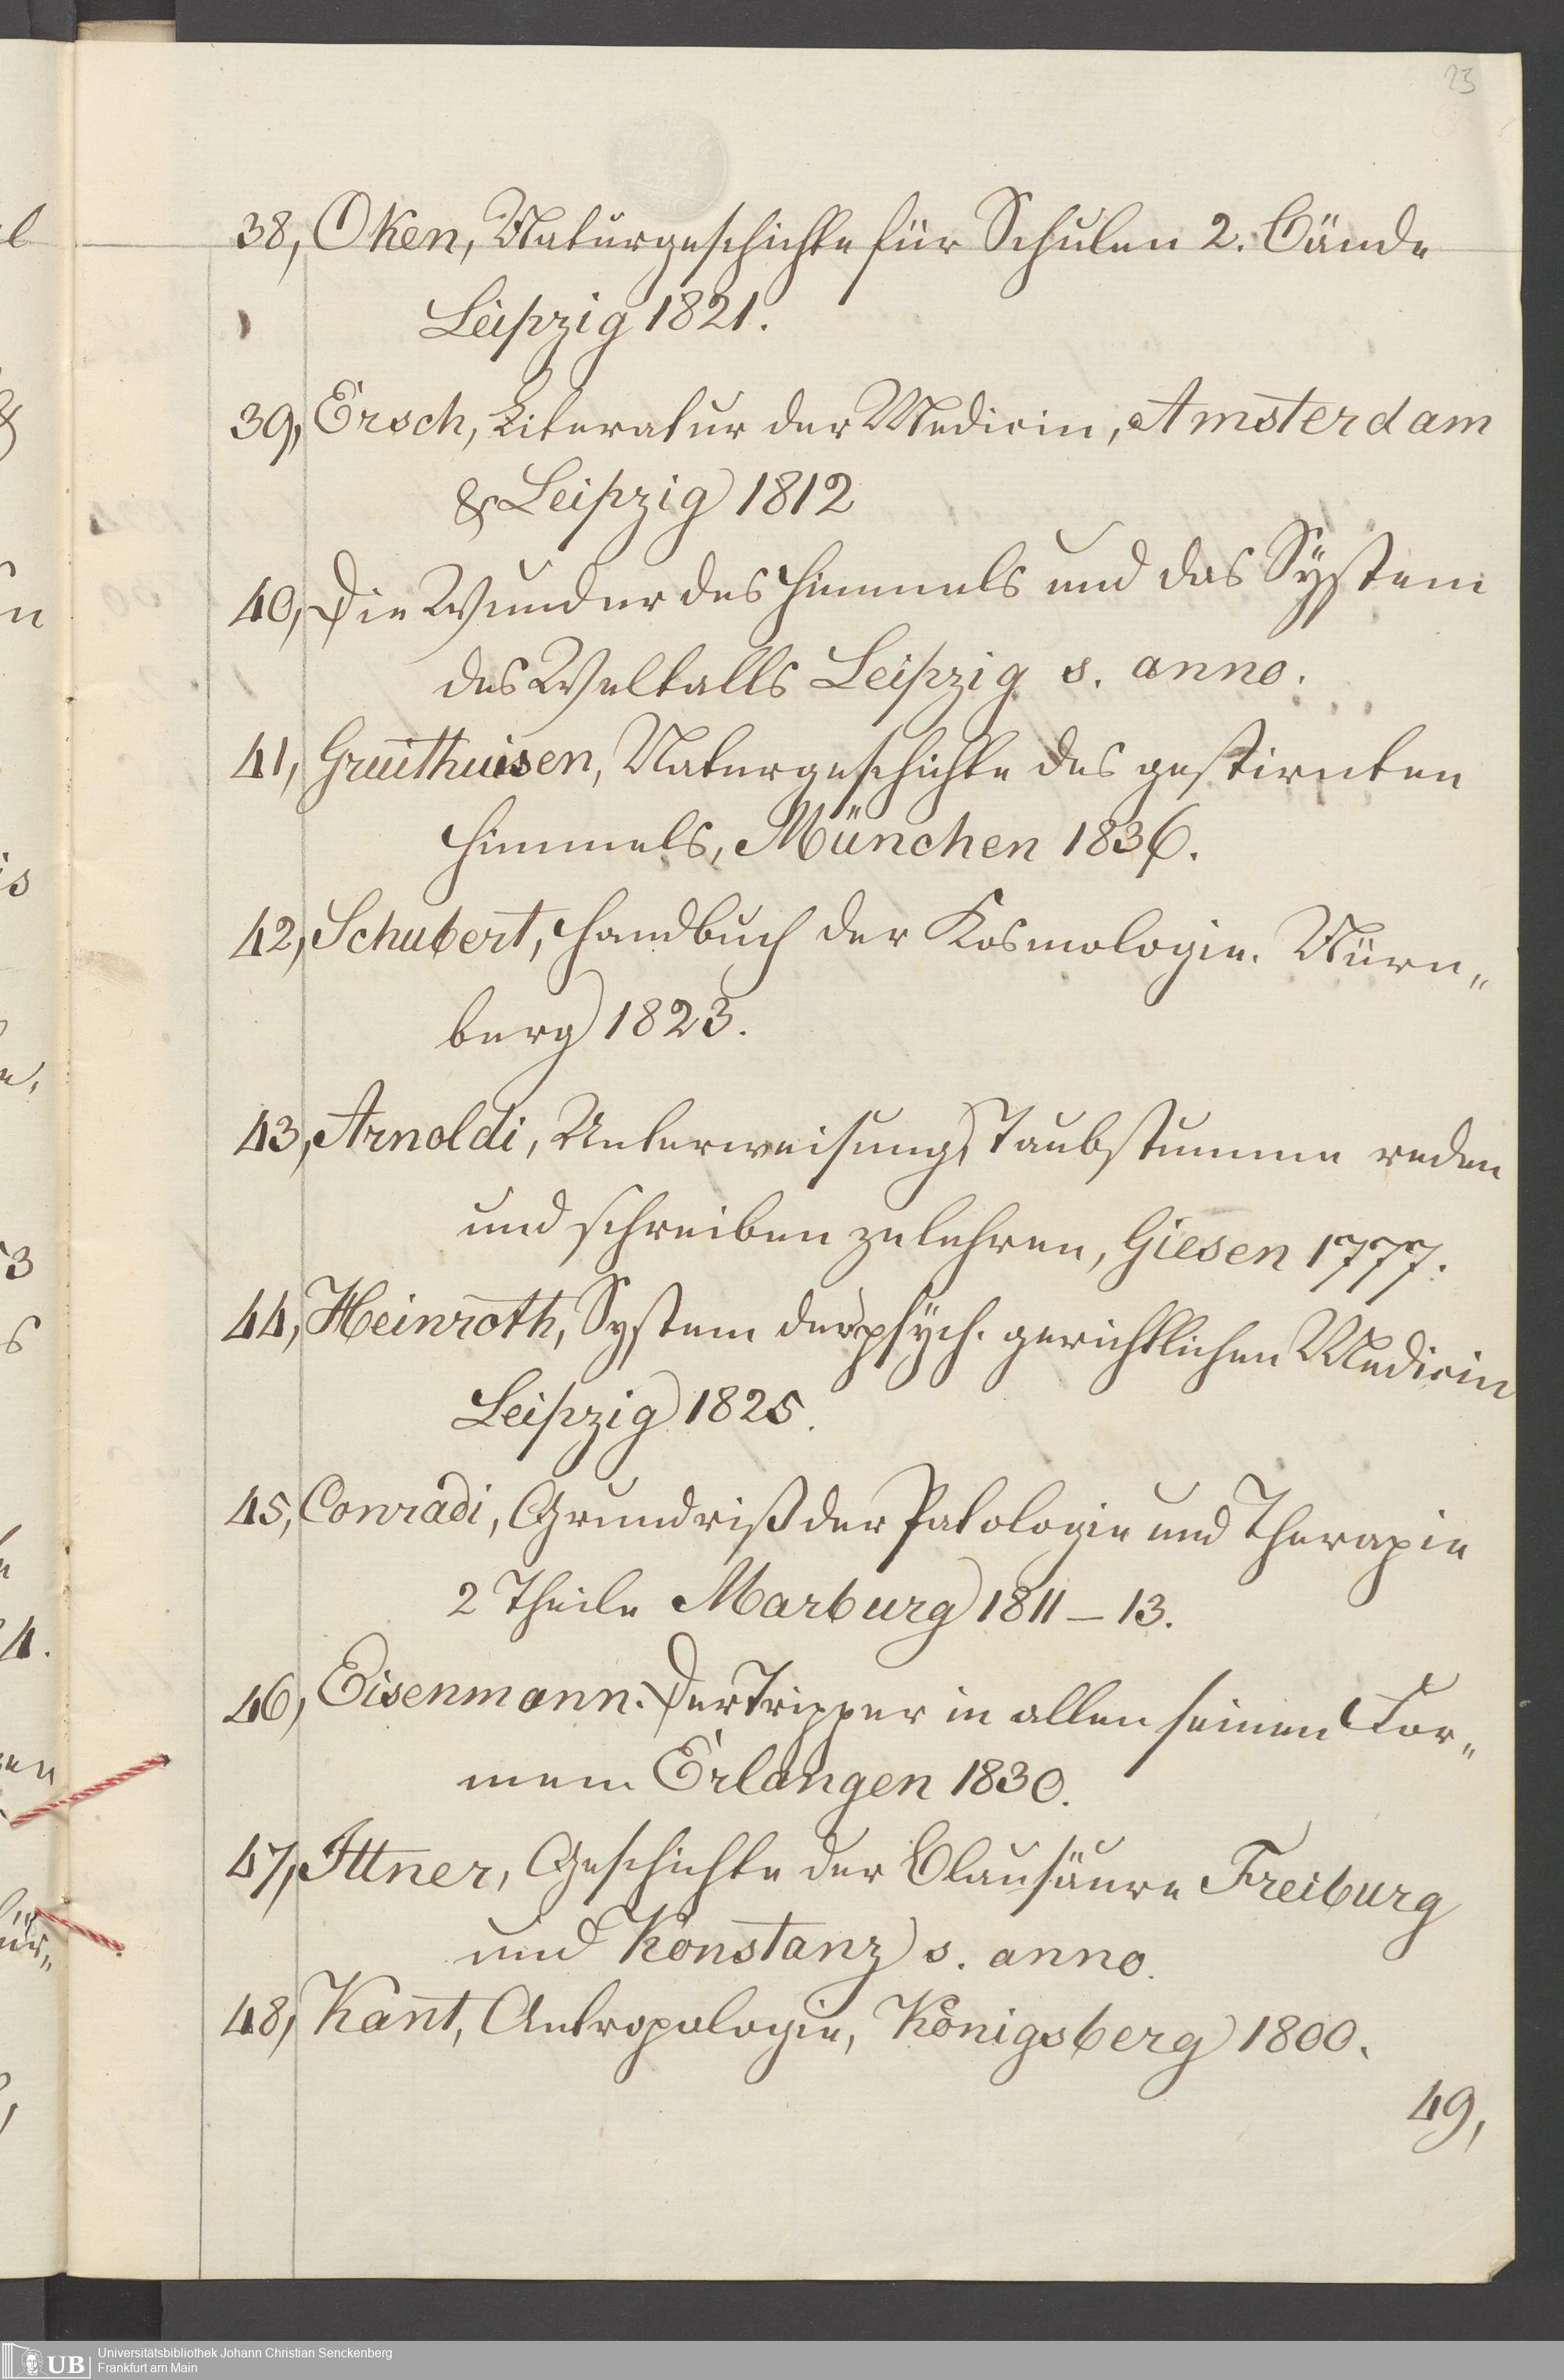 23
38, Oken, Naturgeschichte für Schulen 2. Bände
Leipzig 1821.
39, Ersch, Literatur der Medicin, Amsterdam
& Leipzig 1812
40, Die Wunder des Himmels und das System
des Weltalls Leipzig s. anno.
41, Gruithuisen, Naturgeschichte des gestirnten
Himmels, München 1836.
42, Schubert, Handbuch der Kosmologie. Nürn„
berg 1823.
43, Arnoldi, Unterweisung, Taubstumme reden
und schreiben zu lehren, Giesen 1777.
44, Heinroth, System der psych. gerichtlichen Medicin
Leipzig 1825.
45, Conradi, Grundriß der Patologie und Therapie
2 Theile Marburg 1811–13.
46, Eisenmann. Der Tripper in allen seinen For„
men Erlangen 1830.
47, Ittner, Geschichte der Blausäure Freiburg
und Konstanz s. anno.
48, Kant, Antropologie, Königsberg 1800.
49,
Universitätsbibliothek Johann Christian Senckenberg
Frankfurt am Main
UB